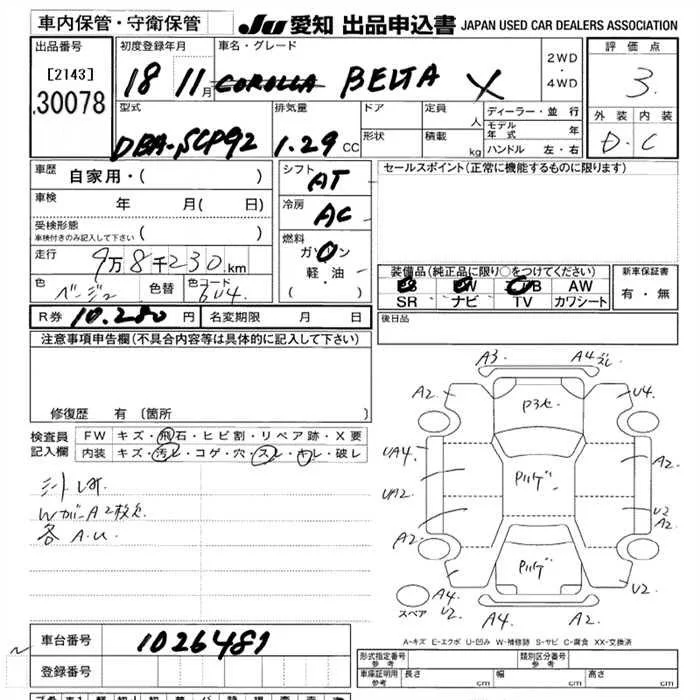 車内保管・守衛保管
JU 愛知 出品申込書 JAPAN USED CAR DEALERS ASSOCIATION
出品番号
[2143]
30078
初度登録年月
18 11月
車名・グレード
COROLLA BELTA X
2WD
・
4WD
評価点
3
外装 内装
D・C
型式
DBA-SCP92
排気量
1.29 CC
ドア
形状
定員
人
積載
kg
ディーラー・並行
モデル年式 年
ハンドル 左・右
車歴
自家用・( )
車検
年 月( 日)
受検形態
車検付きのみ記入して下さい ( )
走行
9万8千230km
色
ベージュ
色替
色コード
6U4
シフト
AT
冷房
AC
燃料
ガソリン
軽・油
( )
セールスポイント(正常に機能するものに限ります)
装備品(純正品に限り○をつけてください)
AW
SR ナビ TV カワシート
新車保証書
有・無
R券 10.280 円 名変期限 月 日
後日品
注意事項申告欄(不具合内容等は具体的に記入して下さい)
修復歴 有 〔箇所
検査員
記入欄
FW キズ・飛石・ヒビ割・リペア跡・X要
内装 キズ・汚レ・コゲ・穴・スレ・キレ・破レ
各 A.U
A3 A4
A2 U4
P3セ
UA4
A2
UA2
U2
A2
A2
U2
A4 A2
スペア A4
A-キズ E-エクボ U-凹み W-補修跡 S-サビ C-腐食 XX-交換済
車台番号
1026481
登録番号
形式指定番号
参考
類別区分番号
参考
車庫証明用
参考
長さ cm 幅 cm 高さ cm